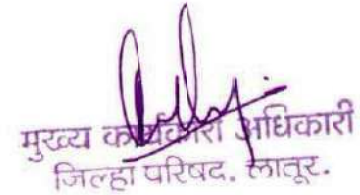 मुख्य कार्यकारी अधिकारी
जिल्हा परिषद, लातूर.